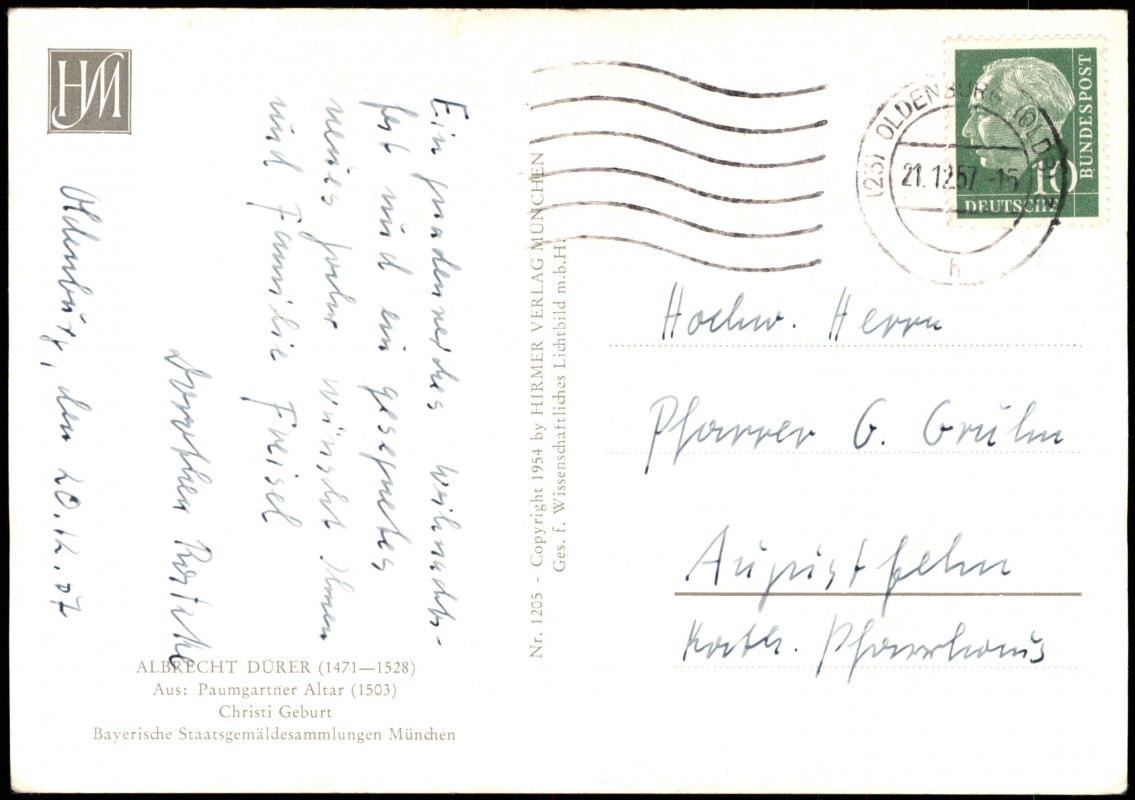 HM
Oldenburg, den 20.12.57
Ein gnadenreiches Weihnachts-
fest und ein gesegnetes
neues Jahr wünscht Ihnen
und Familie
Dorothea
ALBRECHT DÜRER (1471—1528)
Aus: Paumgartner Altar (1503)
Christi Geburt
Bayerische Staatsgemäldesammlungen München
Nr. 1205 - Copyright 1954 by HIRMER VERLAG MÜNCHEN
Ges. f. Wissenschaftliches Lichtbild m.b.H.
(23) OLDENBURG (OLDB)
21.12.57.-15
h
10
DEUTSCHE
BUNDESPOST
Hochw. Herrn
Pfarrer G. Gruhn
Augustfehn
Kath. Pfarrhaus